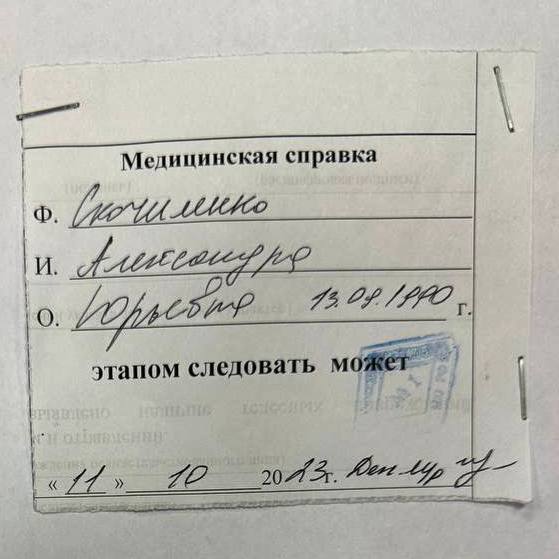 Медицинская справка
Ф. Скочиленко
И. Александра
О. Юрьевна 13.09.1990 г.
этапом следовать может
« 11 » 10 2023г.